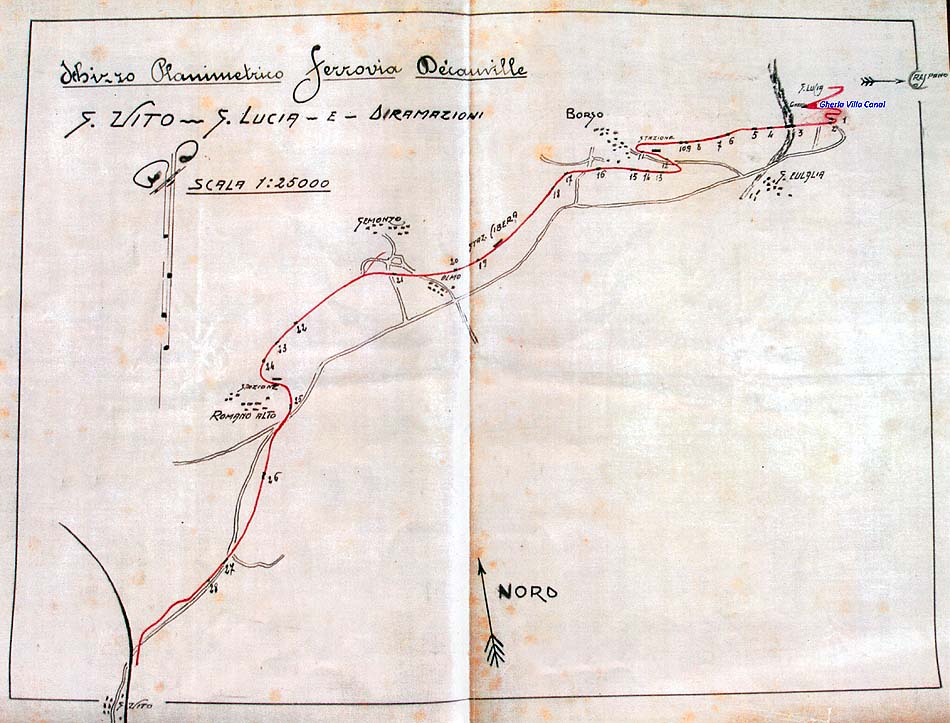 Schizzo Planimetrico Ferrovia Décauville
S. VITO - S. LUCIA - E - DIRAMAZIONI
SCALA 1:25000
S. LUCIA
Gherla Villa Canal
BORSO
STAZIONE
1
2
3
4
5
6
7
8
9
10
11
12
13
14
15
16
17
18
S. EULALIA
STAZ. LIBERA
SEMONZO
19
20
OLMO
21
22
23
24
STAZIONE
25
ROMANO ALTO
26
27
28
NORD
S. VITO